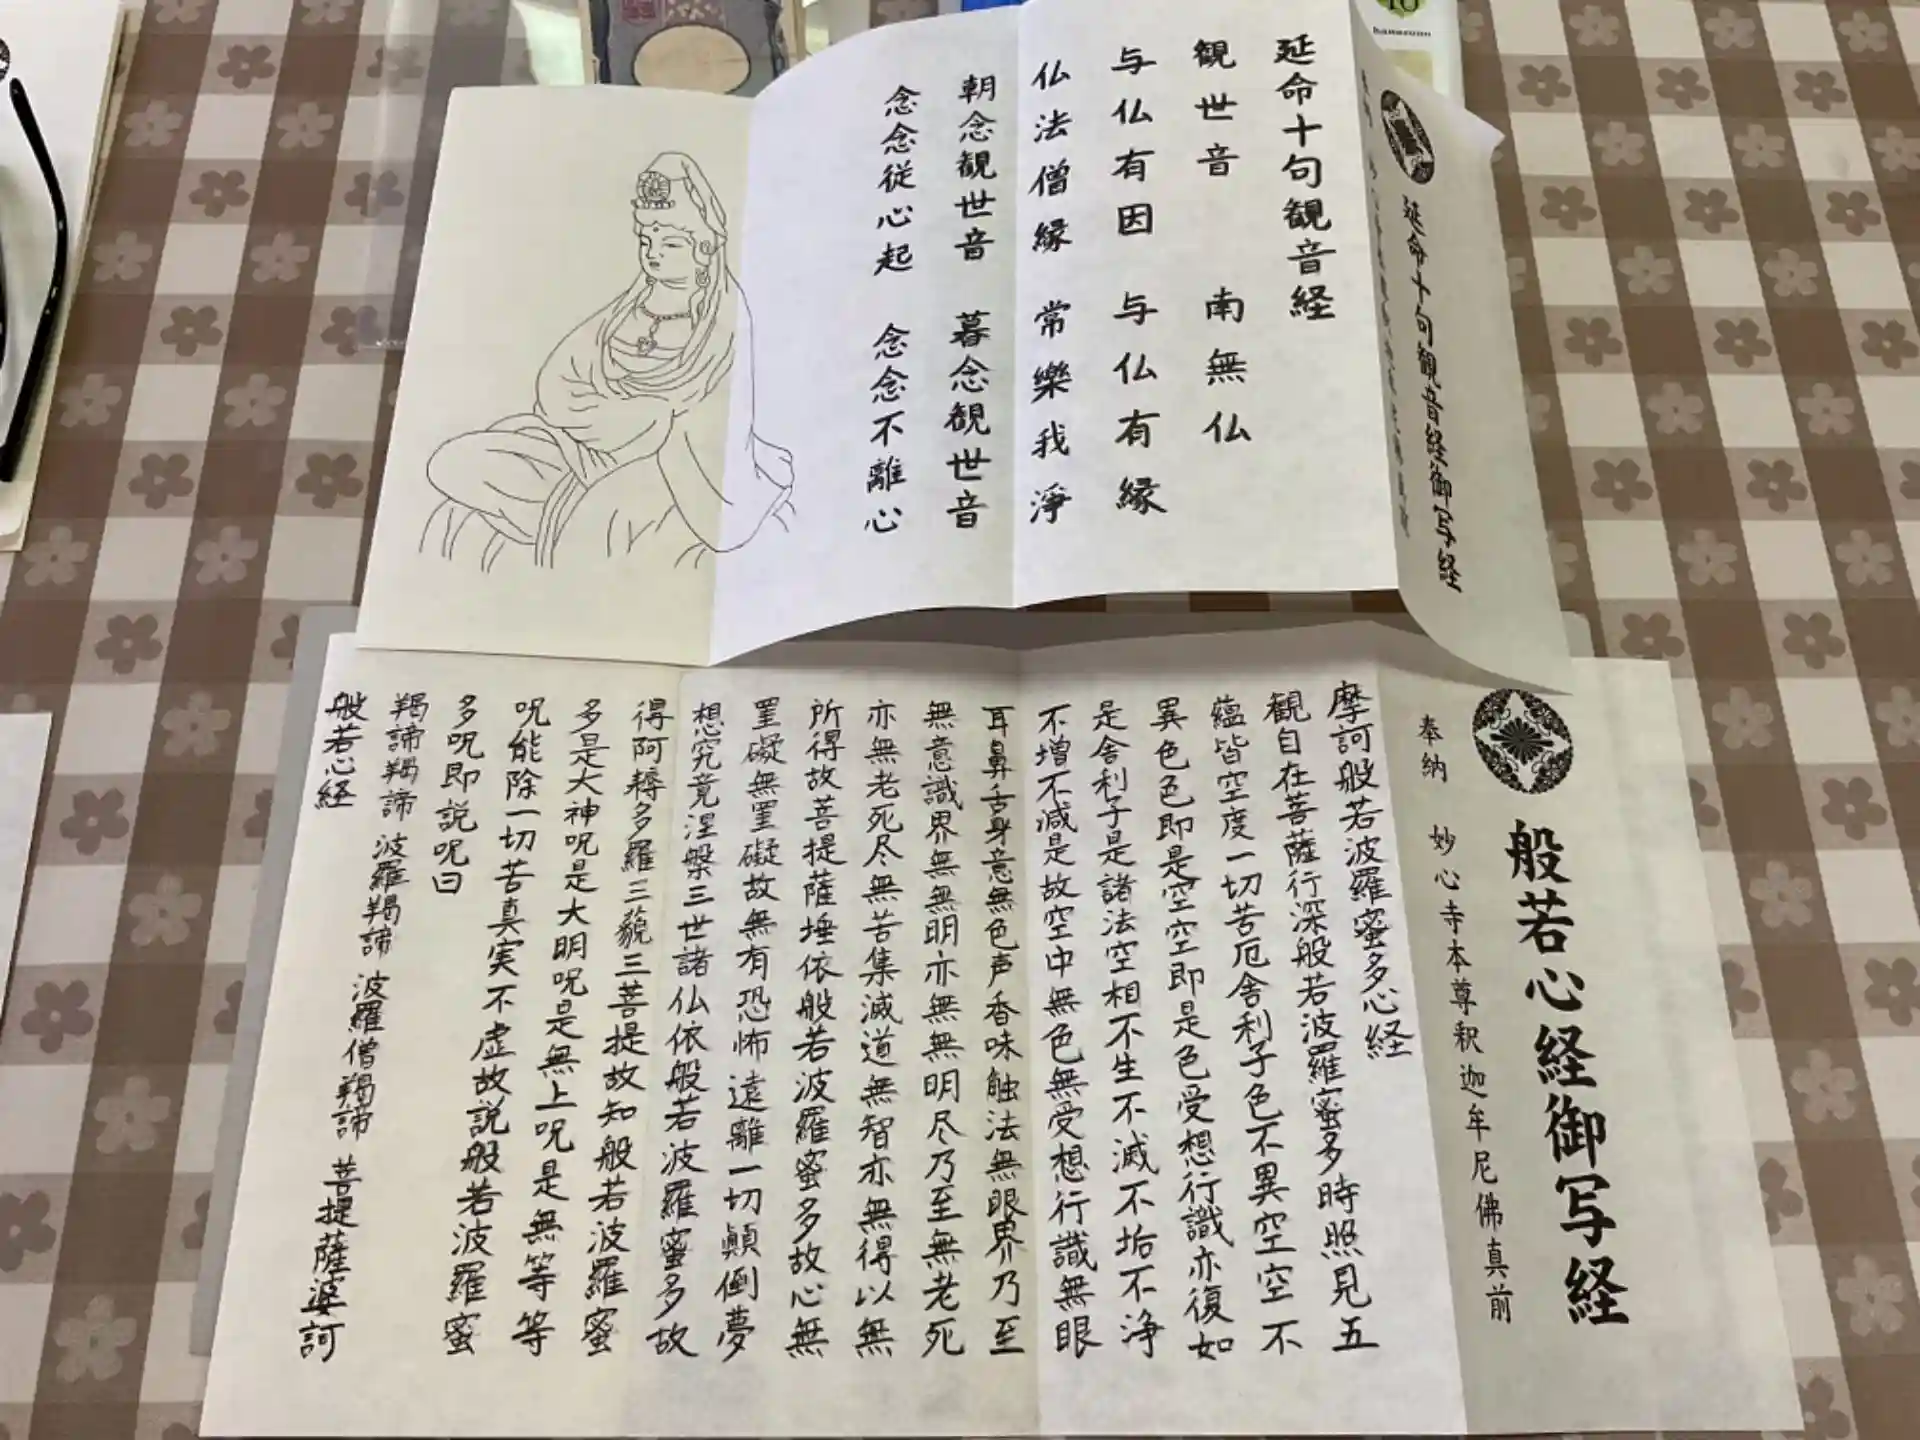 延命十句観音経御写経
延命十句観音経
観世音 南無仏
与仏有因 与仏有縁
仏法僧縁 常樂我淨
朝念観世音 暮念観世音
念念従心起 念念不離心
般若心経御写経
奉納 妙心寺本尊釈迦牟尼佛真前
摩訶般若波羅蜜多心経
観自在菩薩行深般若波羅蜜多時照見五
蘊皆空度一切苦厄舎利子色不異空空不
異色色即是空空即是色受想行識亦復如
是舎利子是諸法空相不生不滅不垢不浄
不増不減是故空中無色無受想行識無眼
耳鼻舌身意無色声香味触法無眼界乃至
無意識界無無明亦無無明尽乃至無老死
亦無老死尽無苦集滅道無智亦無得以無
所得故菩提薩埵依般若波羅蜜多故心無
罣礙無罣礙故無有恐怖遠離一切顛倒夢
想究竟涅槃三世諸仏依般若波羅蜜多故
得阿耨多羅三藐三菩提故知般若波羅蜜
多是大神呪是大明呪是無上呪是無等等
呪能除一切苦真実不虚故説般若波羅蜜
多呪即説呪曰
羯諦羯諦 波羅羯諦 波羅僧羯諦 菩提薩婆訶
般若心経